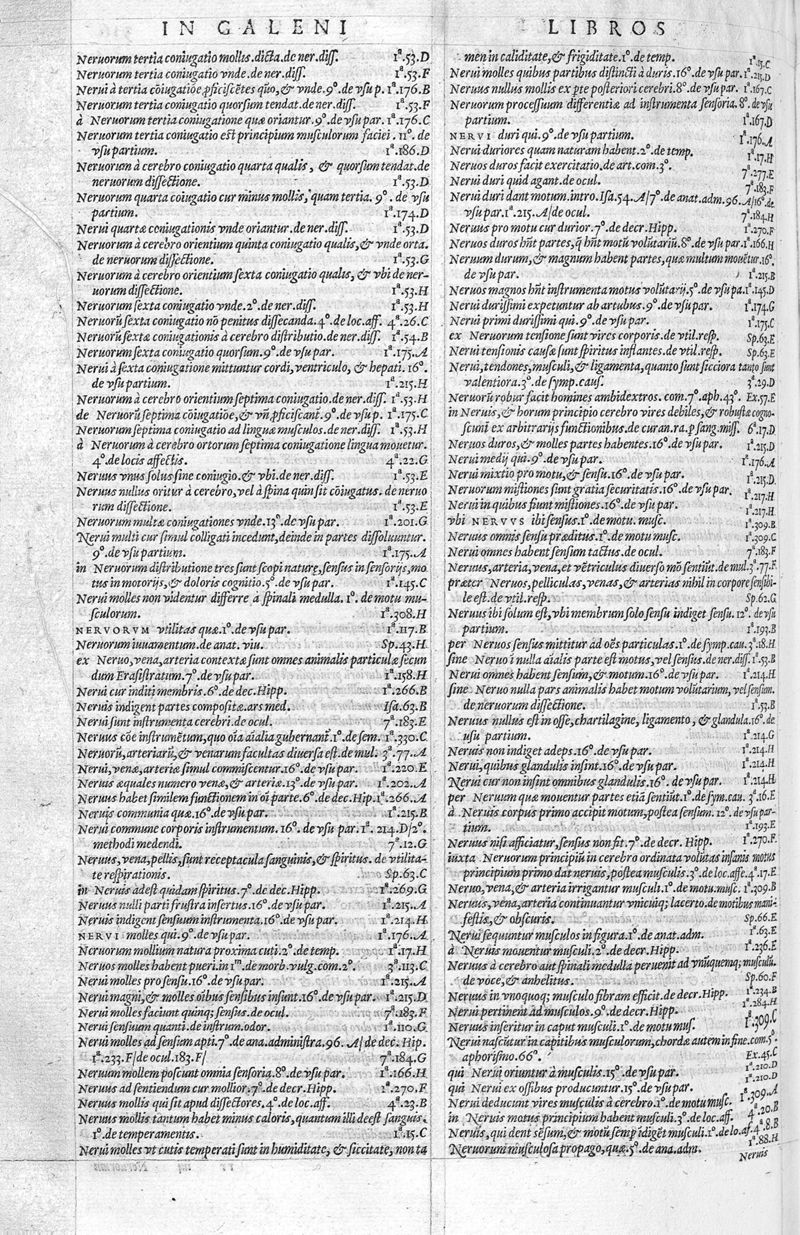 IN GALENI LIBROS
Neruorum tertia coniugatio mollis.dicta.de ner.diss. 1ª.53.D
Neruorum tertia coniugatio vnde.de ner.diss. 1ª.53.F
Nerui à tertia cōiugatiōe,p̱ficiscētes quo,& vnde.9°.de vsu p. 1ª.176.B
Neruorum tertia coniugatio quorsum tendat.de ner.diss. 1ª.53.F
à Neruorum tertia coniugatione quæ oriantur.9°.de vsu par. 1ª.176.C
Neruorum tertia coniugatio est principium musculorum faciei. 11°. de
vsu partium. 1ª.186.D
Neruorum à cerebro coniugatio quarta qualis, & quorsum tendat.de
neruorum dissectione. 1ª.53.D
Neruorum quarta coiugatio cur minus mollis, quam tertia. 9°. de vsu
partium. 1ª.174.D
Nerui quartæ coniugationis vnde oriantur.de ner.diss. 1ª.53.D
Neruorum à cerebro orientium quinta coniugatio qualis,& vnde orta.
de neruorum dissectione. 1ª.53.G
Neruorum à cerebro orientium sexta coniugatio qualis, & vbi de ner-
uorum dissectione. 1ª.53.H
Neruorum sexta coniugatio vnde.2°.de ner.diss. 1ª.53.H
Neruorū sexta coniugatio nō penitus dissecanda.4°.de loc.aff. 4ª.26.C
Neruorū sextæ coniugationis à cerebro distributio.de ner.diss. 1ª.54.B
Neruorum sexta coniugatio quorsum.9°.de vsu par. 1ª.175.A
Nerui à sexta coniugatione mittuntur cordi, ventriculo, & hepati. 16°.
de vsu partium. 1ª.215.H
Neruorum à cerebro orientium septima coniugatio.de ner.diss. 1ª.53.H
de Neruorū septima cōiugatiōe,& vn̄ p̱ficiscant̄.9°.de vsu p. 1ª.175.C
Neruorum septima coniugatio ad linguæ musculos.de ner.diss. 1ª.53.H
à Neruorum à cerebro ortorum septima coniugatione lingua mouetur.
4°.de locis affectis. 4ª.22.G
Neruus vnus solus sine coniugio.& vbi.de ner.diss. 1ª.53.E
Neruus nullus oritur à cerebro,vel à spina quin sit cōiugatus.de neruo
rum dissectione. 1ª.53.E
Neruorum multæ coniugationes vnde.13°.de vsu par. 1ª.201.G
Nerui multi cur simul colligati incedunt,deinde in partes dissoluuntur.
9°.de vsu partium. 1ª.175.A
in Neruorum distributione tres sunt scopi nature,sensus in sensorijs,mo
tus in motorijs,& doloris cognitio.5°.de vsu par. 1ª.145.C
Nerui molles non videntur differre a spinali medulla. 1°. de motu mu-
sculorum. 1ª.308.H
NERVORVM vtilitas quæ.1°.de vsu par. 1ª.117.B
Neruorum iuuamentum.de anat.viu. Sp.43.H
ex Neruo,vena,arteria contextæ sunt omnes animalis particulæ secun
dum Erasistratum.7°.de vsu par. 1ª.158.H
Nerui cur inditi membris.6°.de dec.Hipp. 1ª.266.B
Neruis indigent partes compositæ.ars med. Isa.63.B
Nerui sunt instrumenta cerebri.de ocul. 7ª.183.E
Neruus cōe instrumētum,quo oīa aīalia gubernant̄.1°.de sem. 1ª.330.C
Neruorū,arteriarū,& venarum facultas diuersa est.de mul. 3ª.77.A
Nerui,venæ,arteriæ simul commiscentur.16°.de vsu par. 1ª.220.E
Neruis æquales numero venæ,& arteriæ.13°.de vsu par. 1ª.202.A
Neruus habet similem functionem in oī parte.6°.de dec.Hip. 1ª.266.A
Neruis communia quæ.16°.de vsu par. 1ª.215.B
Nerui commune corporis instrumentum. 16°.de vsu par.1ª. 214.D/2°.
methodi medendi. 7ª.12.G
Neruus,vena,pellis,sunt receptacula sanguinis,& spiritus. de vtilita-
te respirationis. Sp.63.C
in Neruis adest quidam spiritus.7°.de dec.Hipp. 1ª.269.G
Neruus nulli parti frustra insertus.16°.de vsu par. 1ª.215.A
Neruis indigent sensuum instrumenta.16°.de vsu par. 1ª.214.H
NERVI molles qui.9°.de vsu par. 1ª.176.A
Neruorum mollium natura proxima cuti.2°.de temp. 1ª.17.H
Neruos molles habent pueri.in 1°.de morb.vulg.com.2°. 3ª.113.C
Nerui molles pro sensu.16°.de vsu par. 1ª.215.A
Nerui magni,& molles oībus sensibus insunt.16°.de vsu par. 1ª.215.D
Nerui molles faciunt quinq; sensus.de ocul. 7ª.183.F
Nerui sensuum quanti.de instrum.odor. 1ª.110.G
Nerui molles ad sensum apti.7°.de ana.administra.96. A/de dec.Hip.
1ª.233.F/de ocul.183.F/ 7ª.184.G
Neruum mollem poscunt omnia sensoria.8°.de vsu par. 1ª.166.H
Neruus ad sentiendum cur mollior.7°.de decr.Hipp. 1ª.270.F
Neruus mollis qui sit apud dissectores.4°.de loc.aff. 4ª.23.B
Neruus mollis tantum habet minus caloris,quantum illi deest sanguis.
1°.de temperamentis. 1ª.15.C
Nerui molles vt cutis temperati sunt in humiditate, & siccitate, non ta
men in caliditate,& frigiditate.1°.de temp. 1ª.15.C
Nerui molles quibus partibus distincti à duris.16°.de vsu par. 1ª.215.D
Neruus nullus mollis ex pte posteriori cerebri.8°.de vsu par. 1ª.167.C
Neruorum processuum differentiæ ad instrumenta sensoria. 8°. de vsu
partium. 1ª.167.D
NERVI duri qui.9°.de vsu partium. 1ª.176.A
Nerui duriores quam naturam habent.2°.de temp. 1ª.17.H
Neruos duros facit exercitatio.de art.com.3°. 7ª.277.E
Nerui duri quid agant.de ocul. 7ª.183.F
Nerui duri dant motum.intro.Isa.54.A/7°.de anat.adm.96.A/16°.de
vsu par.1ª.215.A/de ocul. 7ª.184.H
Neruus pro motu cur durior.7°.de decr.Hipp. 1ª.270.F
Neruos duros hn̄t partes,q̄ hn̄t motū volūtariū.8°.de vsu par. 1ª.166.H
Neruum durum,& magnum habent partes,quæ multum mouētur.16°.
de vsu par. 1ª.215.B
Neruos magnos hn̄t instrumenta motus volūtarij.5°.de vsu pa. 1ª.145.D
Nerui durissimi expetuntur ab artubus.9°.de vsu par. 1ª.174.G
Nerui primi durissimi qui.9°.de vsu par. 1ª.175.C
ex Neruorum tensione sunt vires corporis.de vtil.resp. Sp.63.E
Nerui tensionis causæ sunt spiritus inflantes.de vtil.resp. Sp.63.E
Nerui,tendones,musculi,& ligamenta,quanto sunt sicciora tanto sunt
valentiora.3°.de symp.caus. 3ª.29.D
Neruorū robur facit homines ambidextros.com.7°.aph.43°. Ex.57.E
in Neruis,& horum principio cerebro vires debiles,& robustæ cogno-
scuni ex arbitrarijs functionibus.de curan.ra.p sang.miss. 6ª.17.D
Neruos duros,& molles partes habentes.16°.de vsu par. 1ª.215.D
Nerui medij qui.9°.de vsu par. 1ª.176.A
Nerui mixtio pro motu,& sensu.16°.de vsu par. 1ª.215.D
Neruorum mistiones sunt gratia securitatis.16°.de vsu par. 1ª.217.H
Nerui in quibus fiunt mistiones.16°.de vsu par. 1ª.217.H
vbi NERVVS ibi sensus.1°.de motu.musc. 1ª.309.B
Neruus omnis sensu præditus.1°.de motu musc. 1ª.309.C
Nerui omnes habent sensum tactus.de ocul. 7ª.183.F
Neruus,arteria,vena,et vētriculus diuerso mō sentiūt.de mul.3ª.77.F
præter Neruos,pelliculas,venas,& arterias nihil in corpore sensibi-
le est.de vtil.resp. Sp.62.G
Neruus ibi solum est,vbi membrum solo sensu indiget sensu. 12°. de vsu
partium. 1ª.193.B
per Neruos sensus mittitur ad oēs particulas.1°.de symp.cau. 3ª.18.H
sine Neruo ī nulla aīalis parte est motus,vel sensus.de ner.diss. 1ª.53.B
Nerui omnes habent sensum,& motum.16°.de vsu par. 1ª.214.H
sine Neruo nulla pars animalis habet motum volūtarium,vel sensum.
de neruorum dissectione. 1ª.53.B
Neruus nullus est in osse, chartilagine, ligamento, & glandula.16°.de
usu partium. 1ª.214.G
Neruis non indiget adeps.16°.de vsu par. 1ª.214.H
Nerui,quibus glandulis insint.16°.de vsu par. 1ª.214.H
Nerui cur non insint omnibus glandulis.16°. de vsu par. 1ª.214.H
per Neruum quæ mouentur partes etiā sentiūt.1°.de sym.cau. 3ª.16.E
à Neruis corpus primo accipit motum,postea sensum. 12°. de vsu par-
tium. 1ª.193.E
Neruus nisi afficiatur,sensus non fit.7°.de decr. Hipp. 1ª.270.F
iuxta Neruorum principiū in cerebro ordinata volūtas insanis motus
principium primo dat neruis,postea musculis.3°.de loc.affe.4ª.17.E
Neruo,vena,& arteria irrigantur musculi.1°.de motu.musc. 1ª.309.B
Neruus,vena,arteria continuantur vnicuiq; lacerto.de motibus mani-
festis,& obscuris. Sp.66.E
Nerui sequuntur musculos in figura.1°.de anat.adm. 1ª.63.E
à Neruis mouentur musculi.2°.de decr.Hipp. 1ª.236.E
Neruus à cerebro aut spinali medulla peruenit ad vnūquemq; musculū.
de voce,& anhelitus. Sp.60.F
Neruus in vnoquoq; musculo fibram efficit.de decr.Hipp. 1ª.234.B
Nerui pertinent ad musculos.9°.de decr.Hipp. 1ª.284.H
Neruus inseritur in caput musculi.1°.de motu mus. 1ª.309.C
Nerui nascūtur in capitibus musculorum,chordæ autem in fine.com.5°
aphorismo.66°. Ex.45.C
qui Nerui oriuntur à musculis.15°.de vsu par. 1ª.210.D
qui Nerui ex ossibus producuntur.15°.de vsu par. 1ª.210.D
Nerui deducunt vires musculis à cerebro.1°.de motu musc. 1ª.309.A
in Neruis motus principium habent musculi.3°.de loc.aff. 4ª.20.B
Neruis,qui dent sēsum,& motū semp idigēt musculi.1°.de lo.af.4ª.8.B
Neruorum musculosa propago,quæ.5°.de ana.adm. 1ª.88.H
Neruis